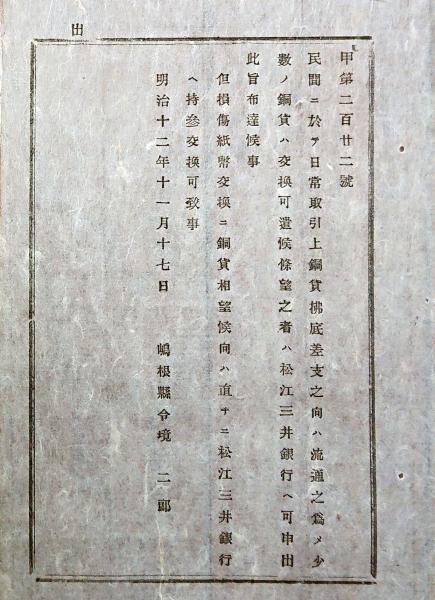 甲第二百廿二號
民間ニ於テ日常取引上銅貨拂底差支之向ハ流通之爲メ少
數ノ銅貨ハ交換可遣候條望之者ハ松江三井銀行ヘ可申出
此旨布達候事
但損傷紙幣交換ニ銅貨相望候向ハ直チニ松江三井銀行
ヘ持參交換可致事
明治十二年十一月十七日 嶋根縣令境 二郎
出